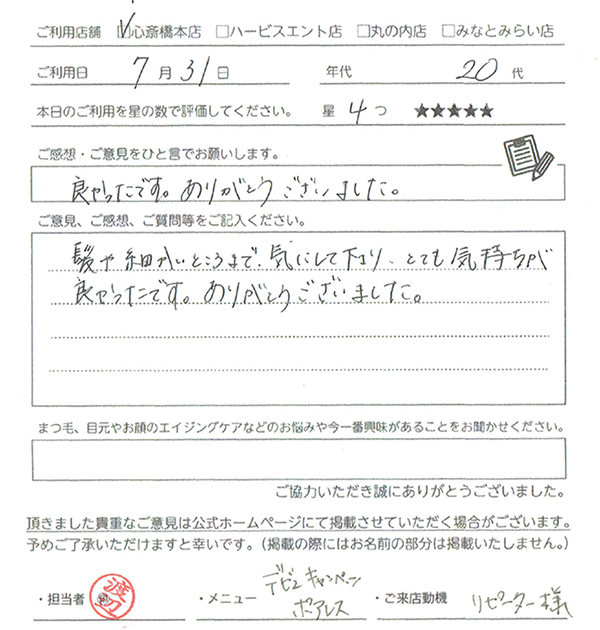 ご利用店舗 ☑心斎橋本店 □ハービスエント店 □丸の内店 □みなとみらい店
ご利用日 7月31日 年代 20代
本日のご利用を星の数で評価してください。 星 4つ ★★★★★
ご感想・ご意見をひと言でお願いします。
良かったです。ありがとうございました。
ご意見、ご感想、ご質問等をご記入ください。
髪や細かいところまで、気にして下さり、とても気持ちが
良かったです。ありがとうございました。
まつ毛、目元やお顔のエイジングケアなどのお悩みや今一番興味があることをお聞かせください。
ご協力いただき誠にありがとうございました。
頂きました貴重なご意見は公式ホームページにて掲載させていただく場合がございます。
予めご了承いただけますと幸いです。（掲載の際にはお名前の部分は掲載いたしません。）
・担当者 ・メニュー デビューキャンペーン ・ご来店動機 リピーター様
ポアレス